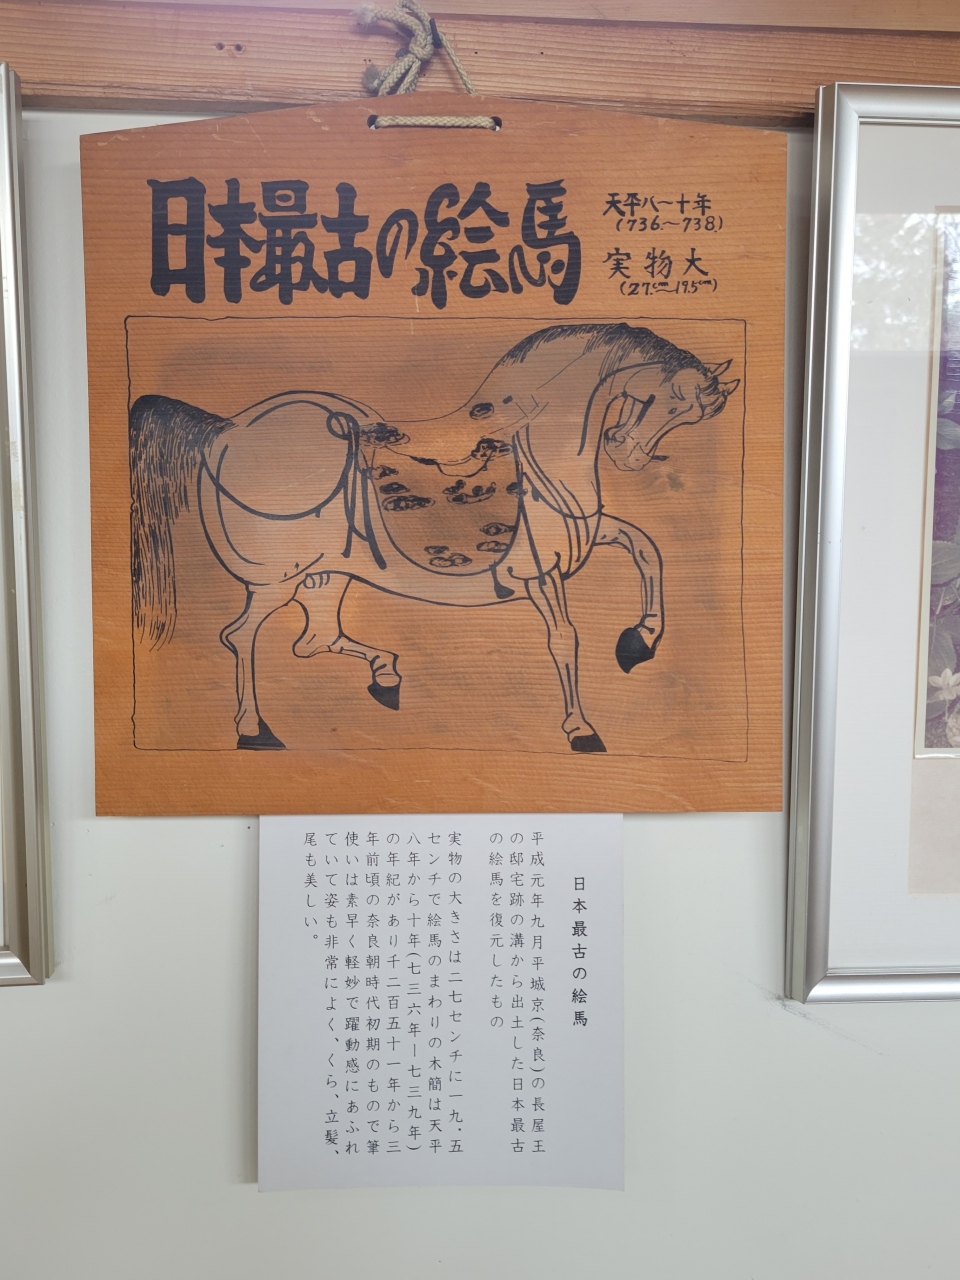 日本最古の絵馬
天平八〜十年
(736.〜738.)
実物大
(27.cm〜19.5cm)
日本最古の絵馬
平成元年九月平城京(奈良)の長屋王
の邸宅跡の溝から出土した日本最古
の絵馬を復元したもの
実物の大きさは二七センチに一九．五
センチで絵馬のまわりの木簡は天平
八年から十年(七三六年ー七三九年)
の年紀があり千二百五十一年から三
年前頃の奈良朝時代初期のもので筆
使いは素早く軽妙で躍動感にあふれ
ていて姿も非常によく、くら、立髪、
尾も美しい。